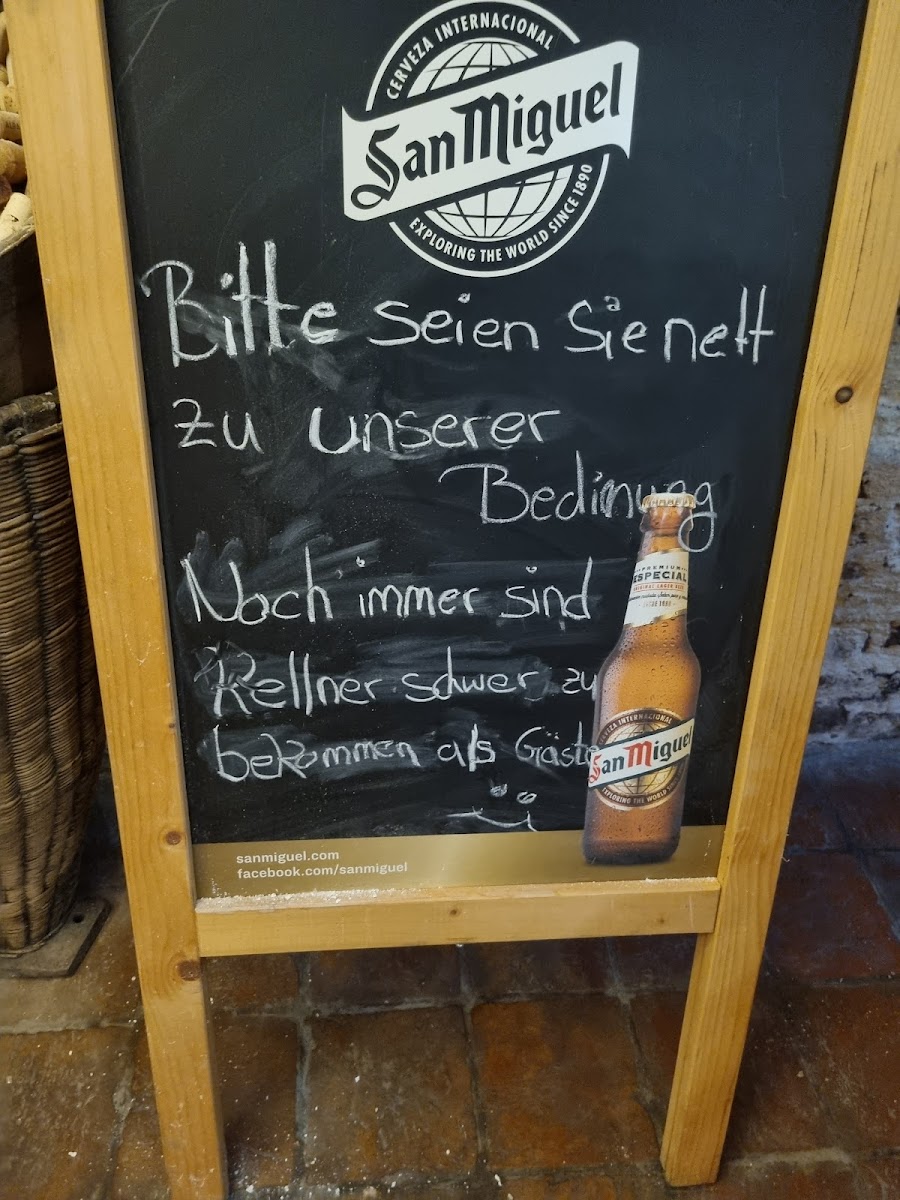 CERVEZA INTERNACIONAL
San Miguel
EXPLORING THE WORLD SINCE 1890
Bitte seien Sie nett
zu unserer
Bedinung
Noch immer sind
Kellner schwer zu
bekommen als Gäste
PREMIUM
ESPECIAL
CERVEZA INTERNACIONAL
San Miguel
EXPLORING THE WORLD
sanmiguel.com
facebook.com/sanmiguel